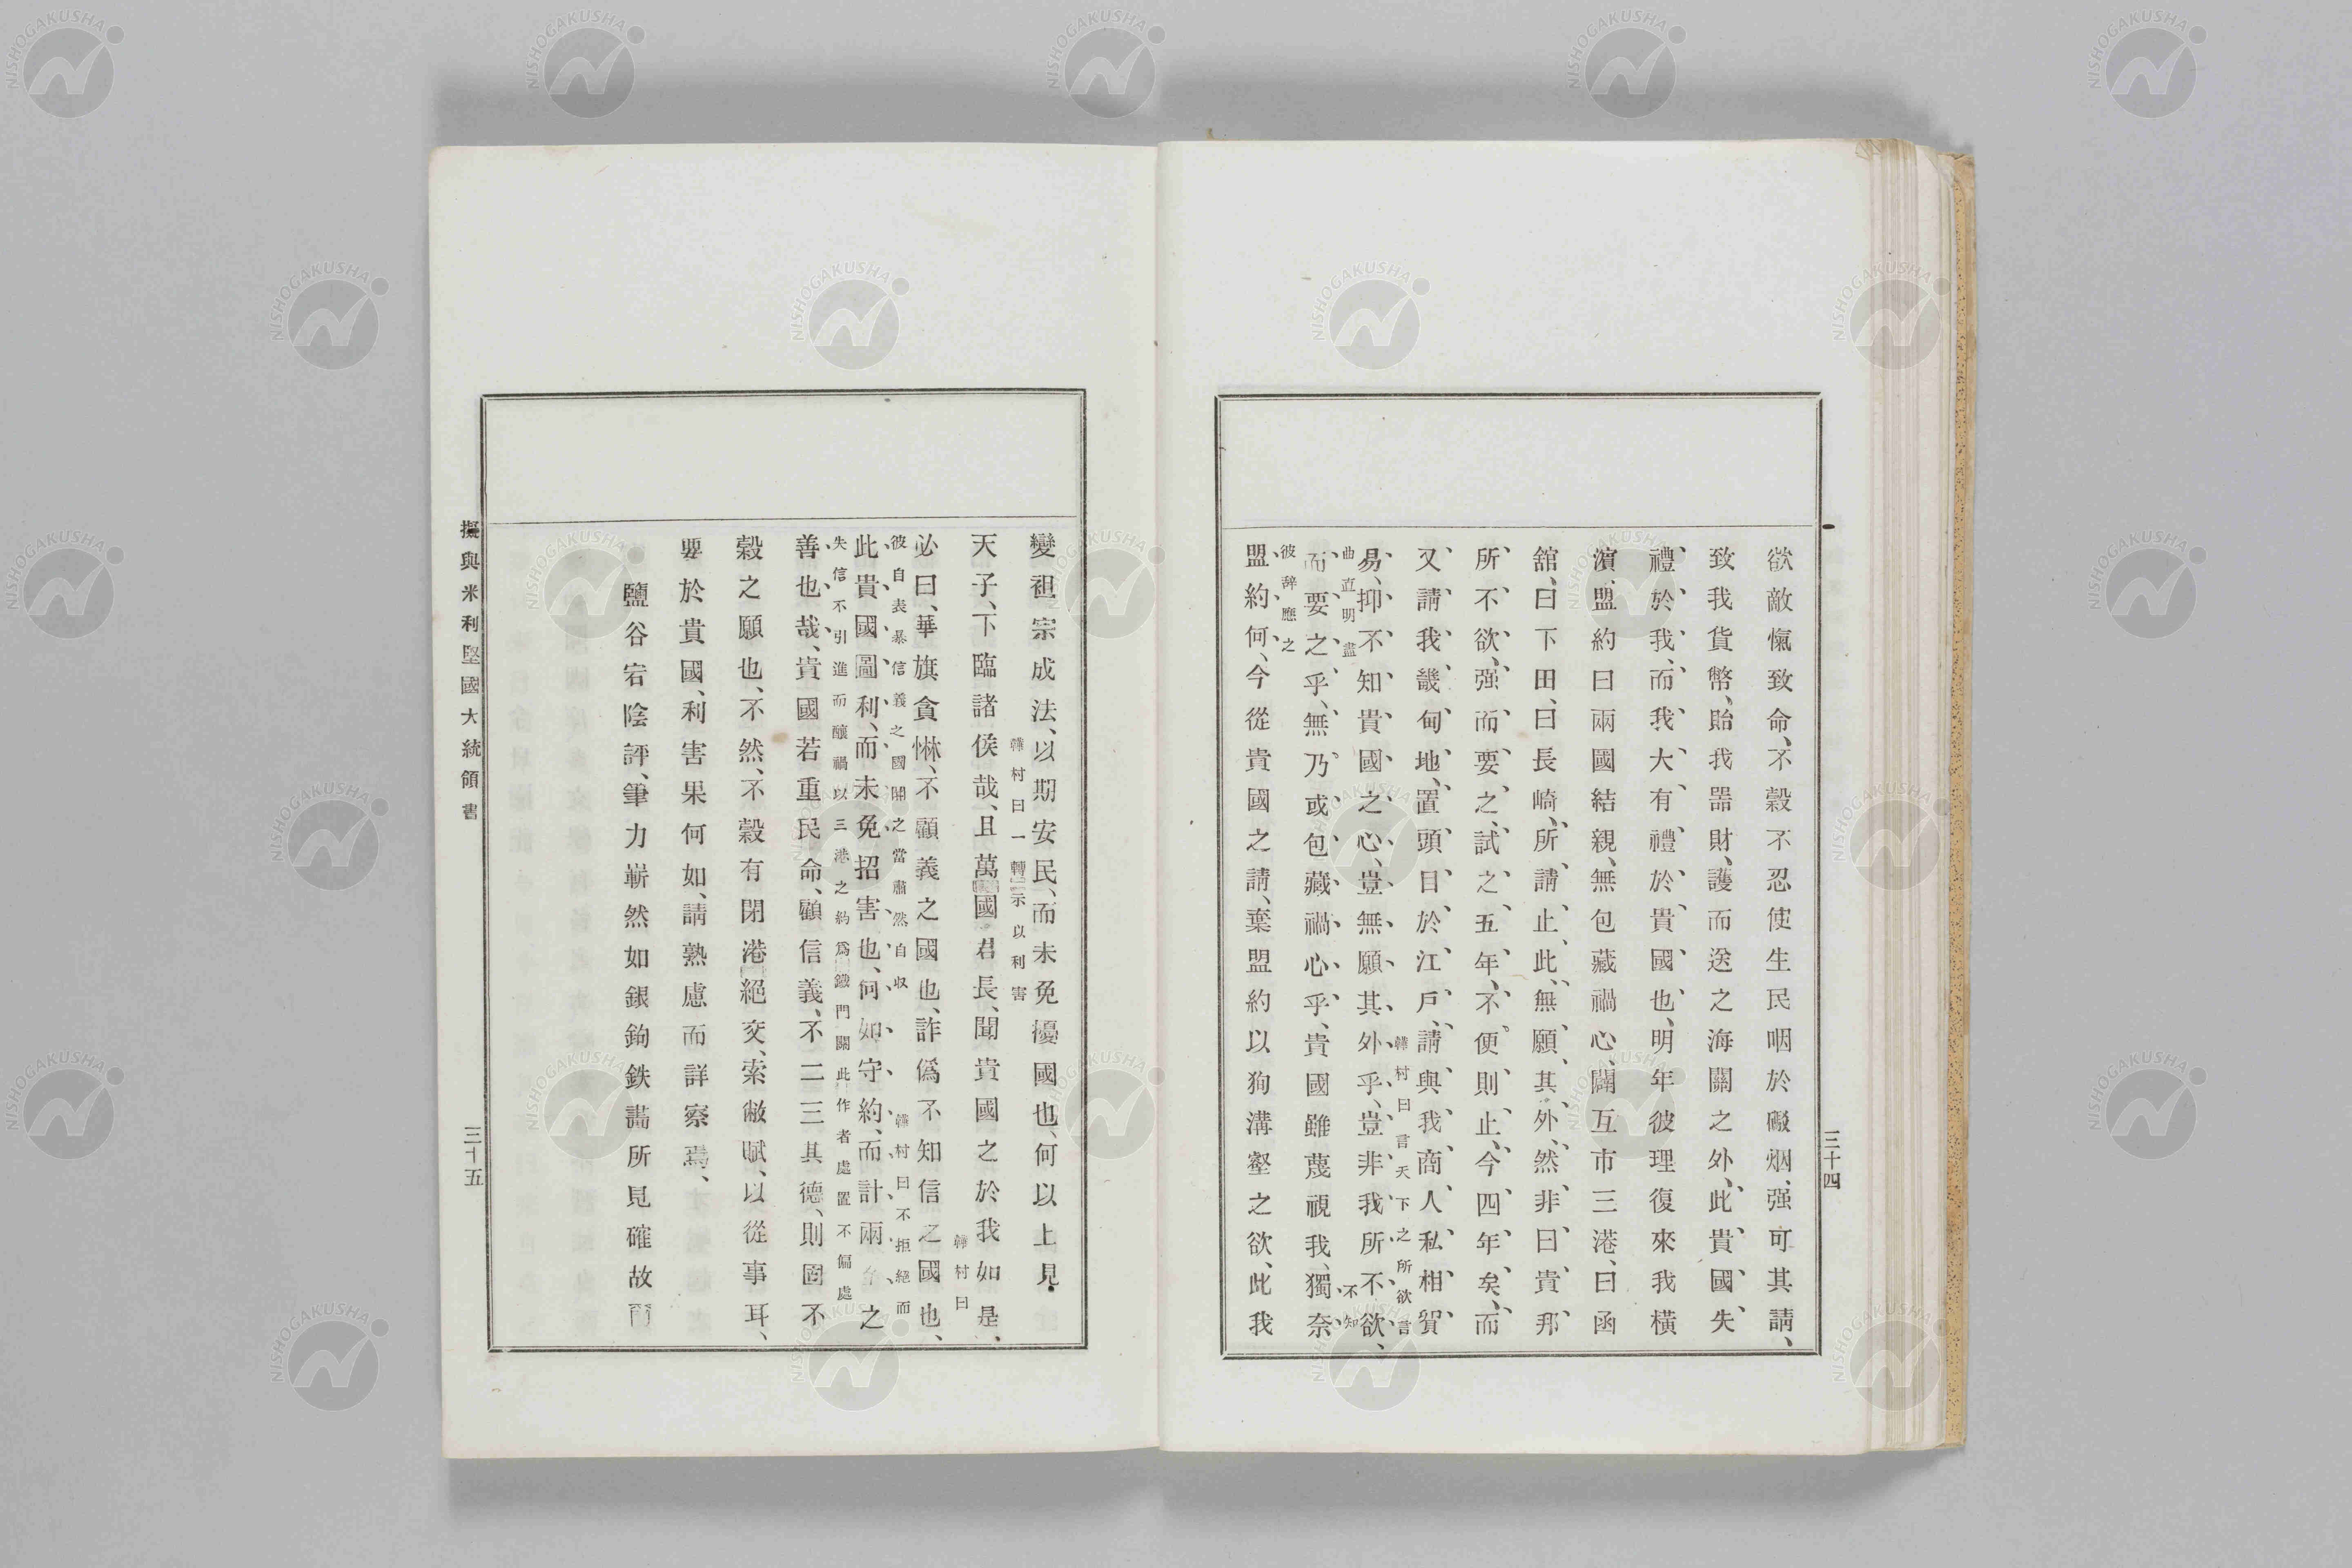 欲敵愾致命、不穀不忍使生民咽於礮烟、强可其請、
致我貨幣、貽我器財、護而送之海關之外、此貴國失
禮於我、而我大有禮於貴國也、明年彼理復來我橫
濱、盟約曰兩國結親、無包藏禍心、闢互市三港、曰函
舘、曰下田、曰長崎、所請止此、無願其外、然非曰貴邦
所不欲、强而要之、試之五年、不便則止、今四年矣、而
又請我畿甸地、置頭目於江戶、請與我商人私相貿
韡村曰言天下之所欲言
易、抑不知貴國之心、豈無願其外乎、豈非我所不欲、
不知
曲直明盡
而要之乎、無乃或包藏禍心乎、貴國雖蔑視我、獨奈
彼辭應之
盟約何、今從貴國之請、棄盟約以狥溝壑之欲、此我
三十四
變祖宗成法、以期安民、而未免擾國也、何以上見
韡村曰一轉示以利害
天子、下臨諸侯哉、且萬國君長、聞貴國之於我如是、
韡村曰
必曰、華旗貪惏、不顧義之國也、詐僞不知信之國也、
彼自表暴信義之國聞之當肅然自収
韡村曰不拒絕而
此貴國圖利、而未免招害也、何如守約、而計兩之
失信不引進而釀禍以三港之約爲鐵門關此作者處置不偏處
善也哉、貴國若重民命、顧信義、不二三其德、則固不
穀之願也、不然、不穀有閉港絕交、索敝賦、以從事耳、
要於貴國、利害果何如、請熟慮而詳察焉、
鹽谷宕陰評、筆力嶄然如銀鉤鉄畫所見確故爾
撫與米利堅國大統領書
三十五
NISHOGAKUSHA